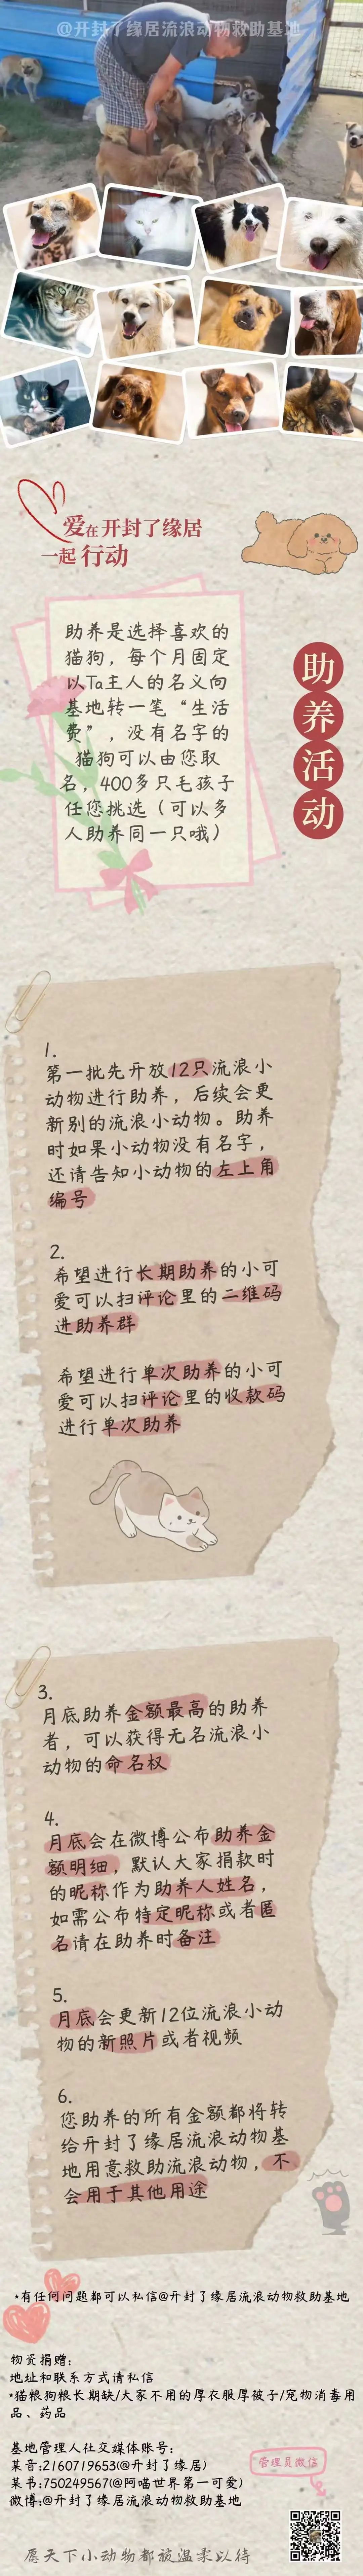 @开封了缘居流浪动物救助基地
爱在开封了缘居
一起行动
助养活动
助养是选择喜欢的
猫狗，每个月固定
以Ta主人的名义向
基地转一笔“生活
费”，没有名字的
猫狗可以由您取
名，400多只毛孩子
任您挑选（可以多
人助养同一只哦）
1.
第一批先开放12只流浪小
动物进行助养，后续会更
新别的流浪小动物。助养
时如果小动物没有名字，
还请告知小动物的左上角
编号
2.
希望进行长期助养的小可
爱可以扫评论里的二维码
进助养群
希望进行单次助养的小可
爱可以扫评论里的收款码
进行单次助养
3.
月底助养金额最高的助养
者，可以获得无名流浪小
动物的命名权
4.
月底会在微博公布助养金
额明细，默认大家捐款时
的昵称作为助养人姓名，
如需公布特定昵称或者匿
名请在助养时备注
5.
月底会更新12位流浪小动
物的新照片或者视频
6.
您助养的所有金额都将转
给开封了缘居流浪动物基
地用意救助流浪动物，不
会用于其他用途
*有任何问题都可以私信@开封了缘居流浪动物救助基地
物资捐赠：
地址和联系方式请私信
*猫粮狗粮长期缺/大家不用的厚衣服厚被子/宠物消毒用
品、药品
基地管理人社交媒体账号：
某音:2160719653(@开封了缘居)
某书:750249567(@阿喵世界第一可爱)
微博:@开封了缘居流浪动物救助基地
管理员微信
愿天下小动物都被温柔以待